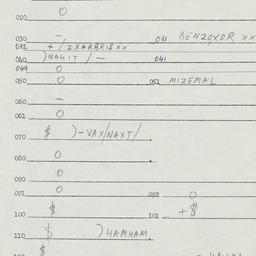 O
020
030 – 031 BENZOXOR XX
032 + / IXARBRIS XX
040 )NAHIT / – 041
049 O
050 O 052 MIZEMAL
060 –
061 O
070 $ )-VAX/NAXT/
080 O
O
090 O
091 092 O
100 $ 101 +$
110 $ )HAMHAM
$